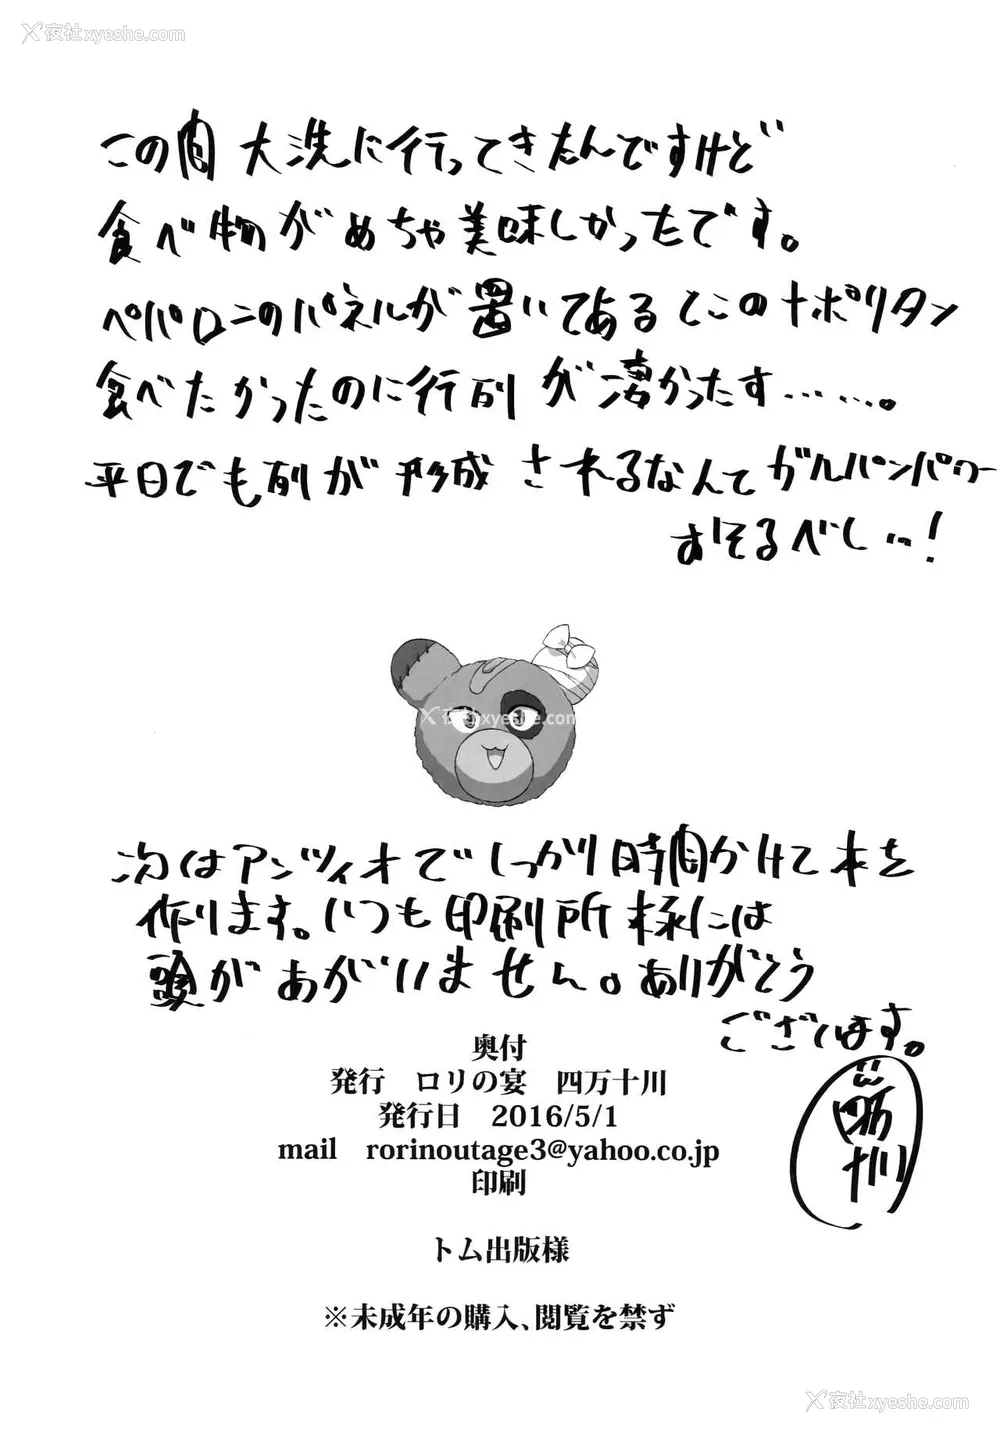 夜社xyeshe.com
この間 大洗に行ってきたんですけど
食べ物がめちゃ美味しかったです。
ペパロニのパネルが置いてあるとこのナポリタン
食べたかったのに行列が凄かったす……。
平日でも列が形成されるなんてガルパンパワー
おそるべし…!
夜社xyeshe.com
次はアンツィオでしっかり時間かけて本を
作ります。いつも印刷所様には
頭があがいません。ありがとう
ございます。
四万十川
奥付
発行 ロリの宴 四万十川
発行日 2016/5/1
mail rorinoutage3@yahoo.co.jp
印刷
トム出版様
※未成年の購入、閲覧を禁ず
夜社xyeshe.com